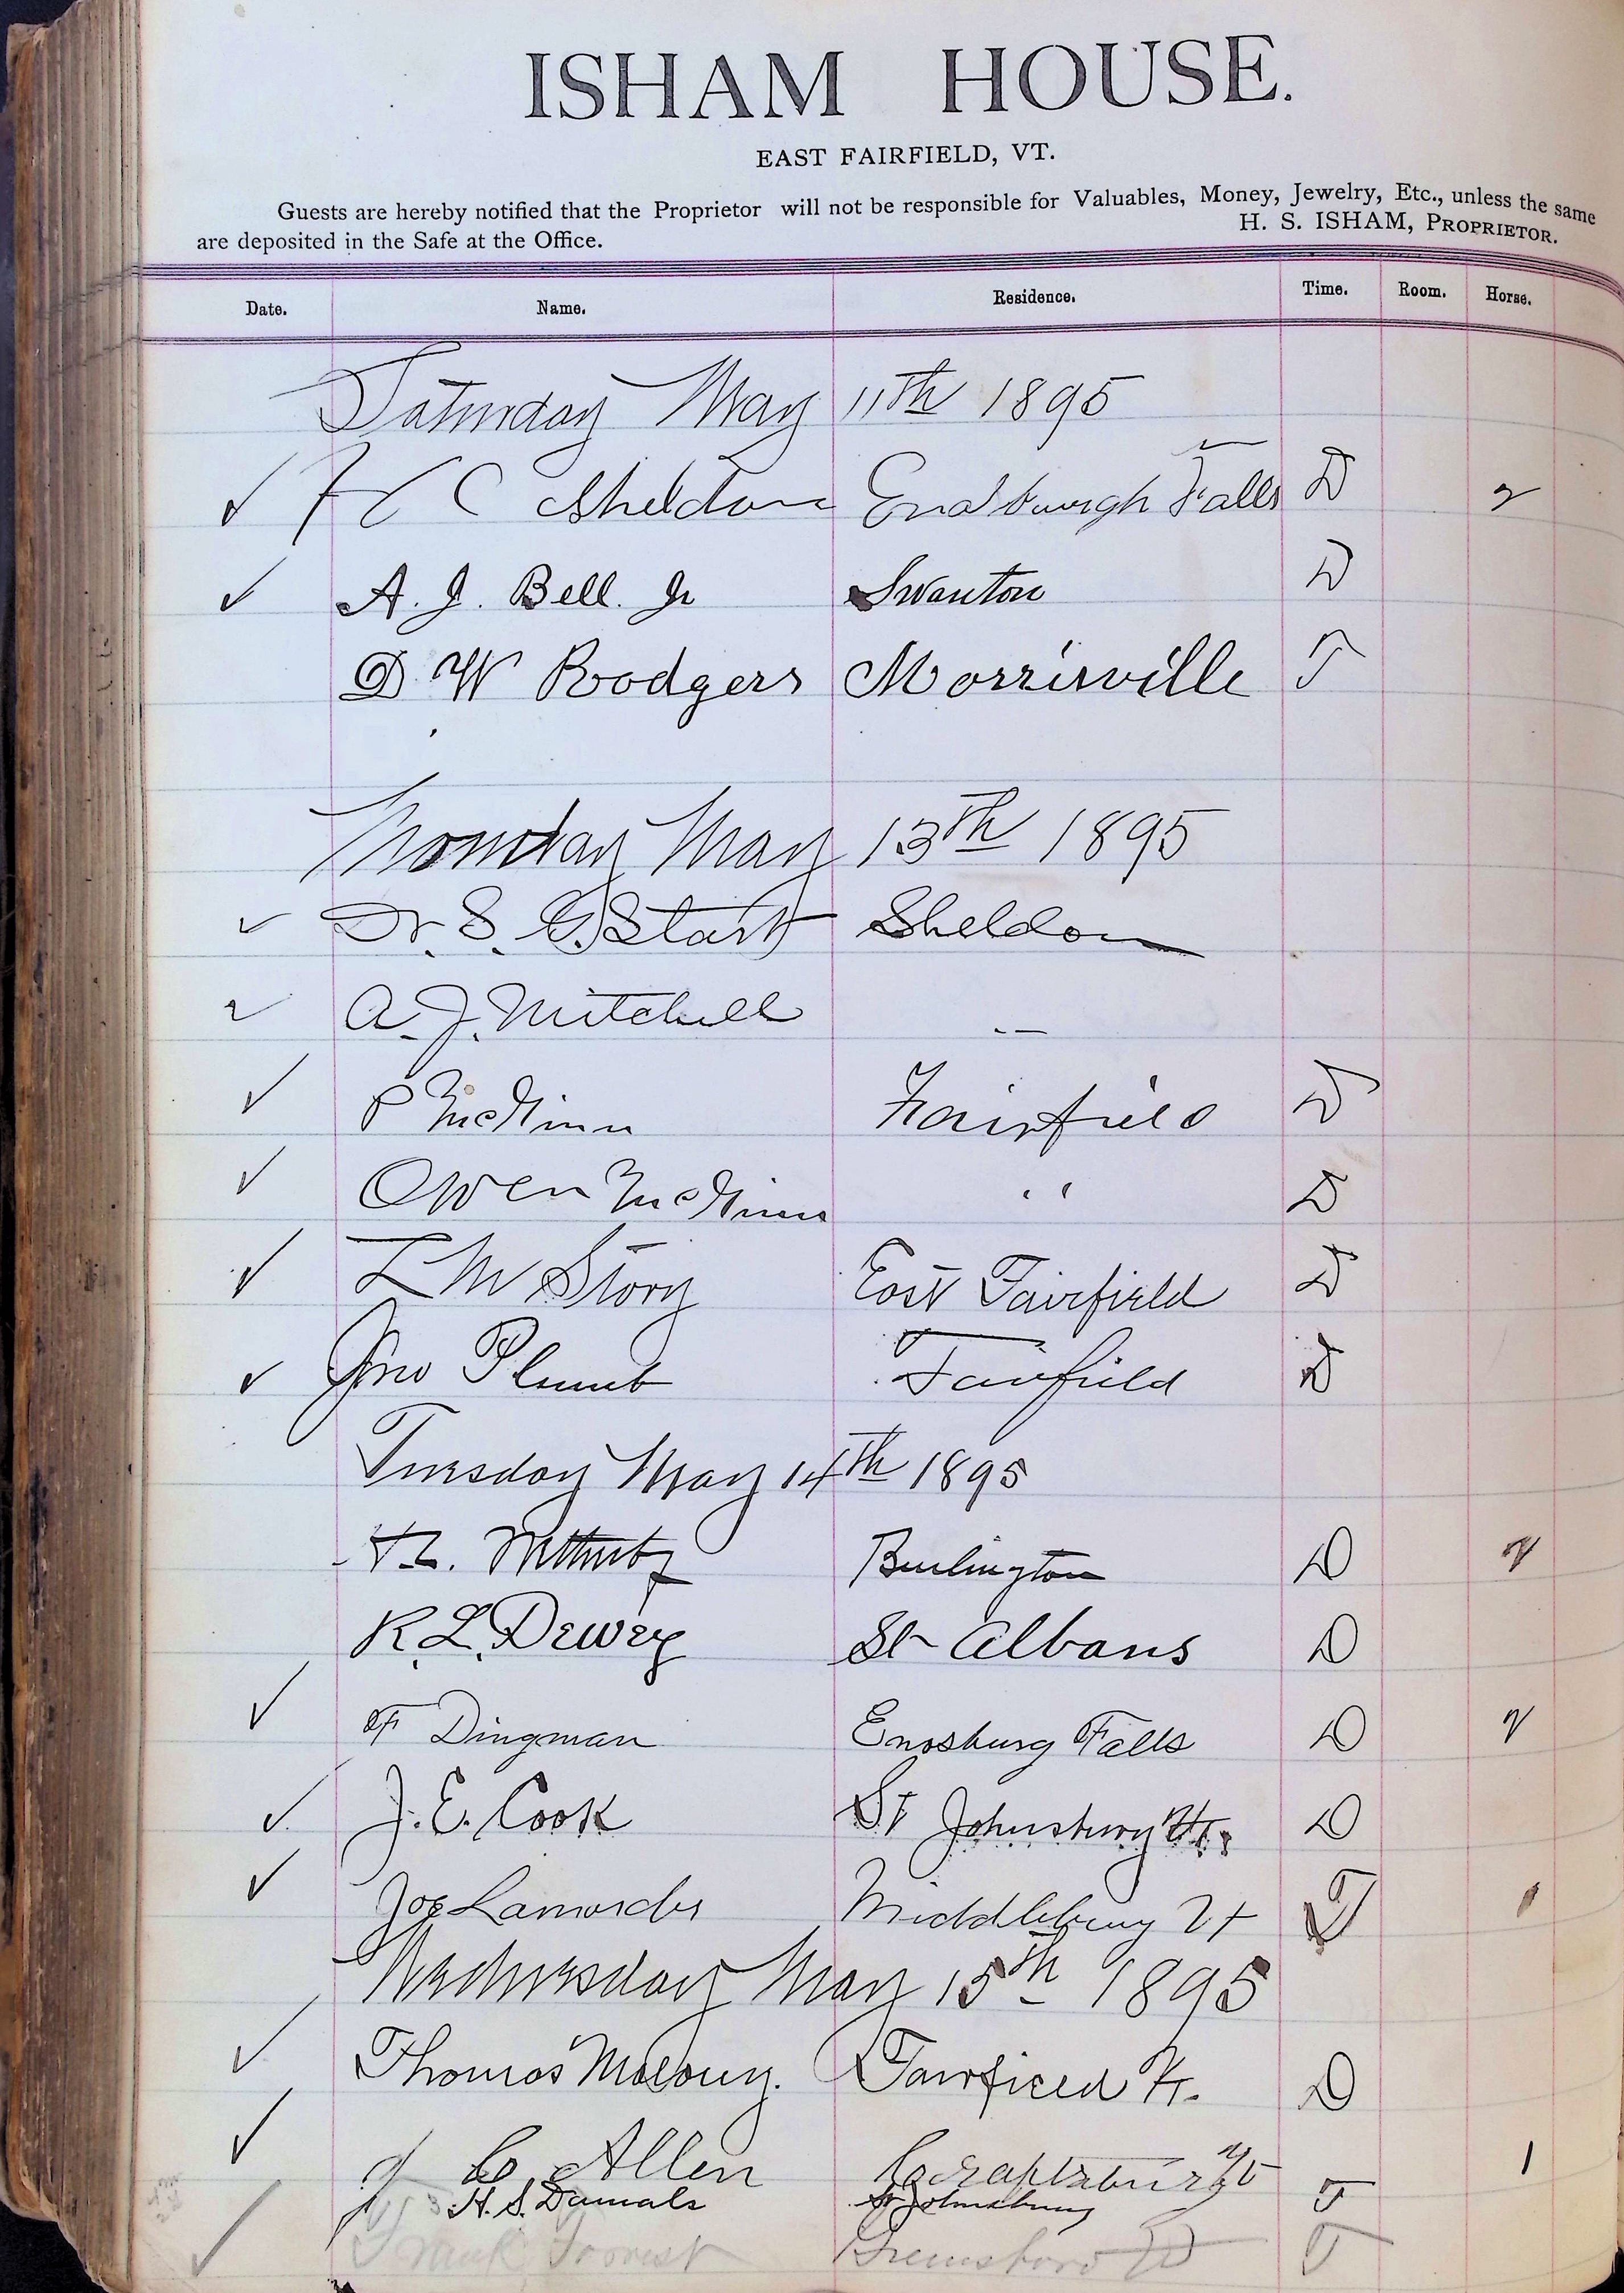 ISHAM HOUSE.
EAST FAIRFIELD, VT.
Guests are hereby notified that the Proprietor will not be responsible for Valuables, Money, Jewelry, Etc., unless the same
are deposited in the Safe at the Office.
H. S. ISHAM, PROPRIETOR.
Date. Name. Residence. Time. Room. Horse.
Saturday May 11th 1895
H C Sheldon Enosburgh Falls D 2
A. J. Bell. Jr Swanton D
D W Rodgers Morrisville T
Monday May 13th 1895
Dr. S. G. Start Sheldon
A. J. Mitchell "
P McGinn Fairfield D
Owen McGinn " D
L M Story East Fairfield D
Jno Plumb Fairfield D
Tuesday May 14th 1895
Burlington D 2
R. L. Dewey St Albans D
F Dingman Enosburg Falls D 2
J. E. Cook St Johnsbury Vt. D
Joe Middlebury Vt T 1
Wednesday May 15th 1895
Thomas Fairfield Vt. D
J C Allen Craftsbury Vt 1
H. S. Daniels St Johnsbury T
Frank Greensboro Vt T